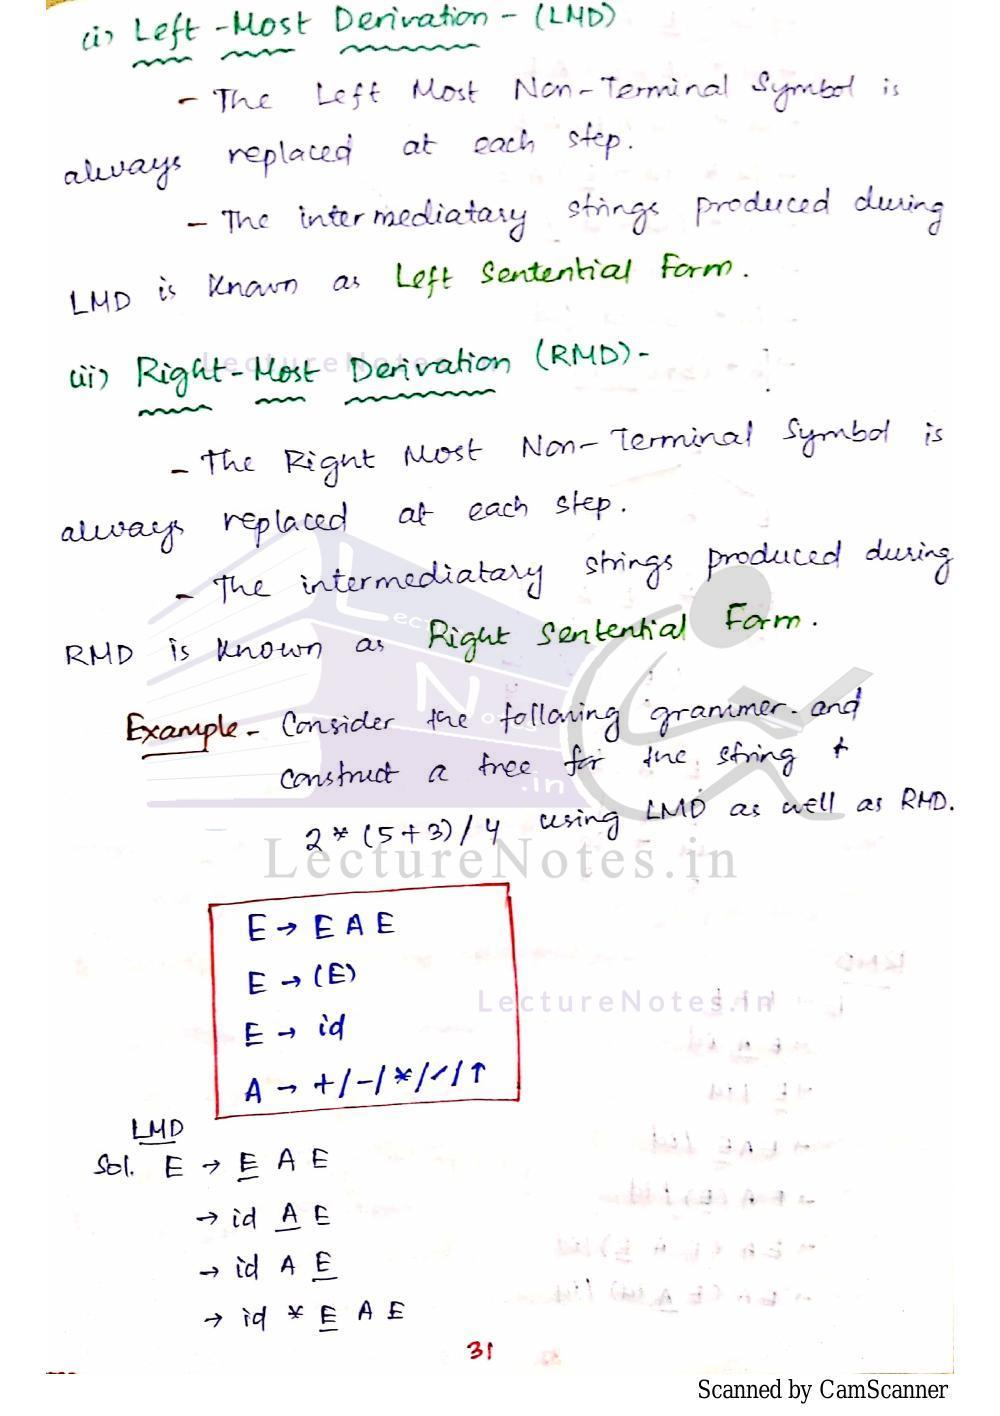 (i) Left-Most Derivation - (LMD)
- The Left Most Non-Terminal Symbol is
always replaced at each step.
- The intermediatary strings produced during
LMD is known as Left Sentential Form.
(ii) Right-Most Derivation (RMD)-
- The Right Most Non-Terminal Symbol is
always replaced at each step.
- The intermediatary strings produced during
RMD is known as Right Sentential Form.
Example- Consider the following grammer. and
construct a tree for the string
2 * (5+3)/4 using LMD as well as RMD.
LectureNotes.in
E → E A E
E → (E)
LectureNotes.in
E → id
A → +/-/*/✓/↑
LMD
Sol. E → E A E
→ id A E
→ id A E
→ id * E A E
31
Scanned by CamScanner